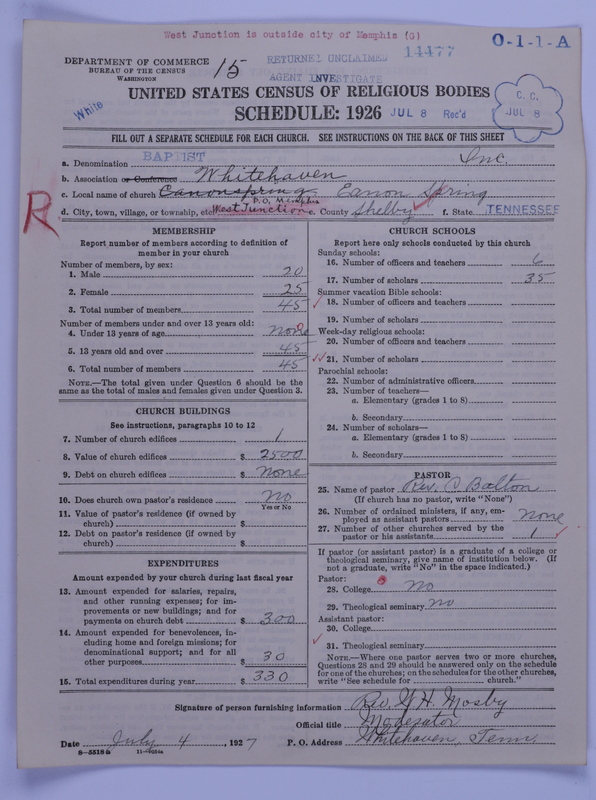 West Junction is outside city of Memphis (G)
O-1-1-A
DEPARTMENT OF COMMERCE
BUREAU OF THE CENSUS
WASHINGTON
15
RETURNED UNCLAIMED
14477
AGENT INVESTIGATE
White
UNITED STATES CENSUS OF RELIGIOUS BODIES
SCHEDULE: 1926
JUL 8 Rec'd
C. C.
JUL 8
FILL OUT A SEPARATE SCHEDULE FOR EACH CHURCH. SEE INSTRUCTIONS ON THE BACK OF THIS SHEET
a. Denomination BAPTIST Inc.
b. Association or Conference Whitehaven
c. Local name of church Canonspring Eanon Spring
P.O. Memphis
d. City, town, village, or township, etc. West Junction e. County Shelby f. State TENNESSEE
R
MEMBERSHIP
Report number of members according to definition of
member in your church
Number of members, by sex:
1. Male 20
2. Female 25
3. Total number of members 45
Number of members under and over 13 years old:
4. Under 13 years of age none
5. 13 years old and over 45
6. Total number of members 45
NOTE.—The total given under Question 6 should be the
same as the total of males and females given under Question 3.
CHURCH BUILDINGS
See instructions, paragraphs 10 to 12
7. Number of church edifices 1
8. Value of church edifices $ 2500
9. Debt on church edifices $ None
10. Does church own pastor's residence No
Yes or No
11. Value of pastor's residence (if owned by
church) $
12. Debt on pastor's residence (if owned by
church) $
EXPENDITURES
Amount expended by your church during last fiscal year
13. Amount expended for salaries, repairs,
and other running expenses; for im-
provements or new buildings; and for
payments on church debt $ 300
14. Amount expended for benevolences, in-
cluding home and foreign missions; for
denominational support; and for all
other purposes $ 30
15. Total expenditures during year $ 330
CHURCH SCHOOLS
Report here only schools conducted by this church
Sunday schools:
16. Number of officers and teachers 6
17. Number of scholars 35
Summer vacation Bible schools:
18. Number of officers and teachers
19. Number of scholars
Week-day religious schools:
20. Number of officers and teachers
21. Number of scholars
Parochial schools:
22. Number of administrative officers
23. Number of teachers—
a. Elementary (grades 1 to 8)
b. Secondary
24. Number of scholars—
a. Elementary (grades 1 to 8)
b. Secondary
PASTOR
25. Name of pastor Rev. C Bolton
(If church has no pastor, write "None")
26. Number of ordained ministers, if any, em-
ployed as assistant pastors None
27. Number of other churches served by the
pastor or his assistants 1
If pastor (or assistant pastor) is a graduate of a college or
theological seminary, give name of institution below. (If
not a graduate, write "No" in the space indicated.)
Pastor:
28. College No
29. Theological seminary No
Assistant pastor:
30. College
31. Theological seminary
NOTE.—Where one pastor serves two or more churches,
Questions 28 and 29 should be answered only on the schedule
for one of the churches; on the schedules for the other churches,
write "See schedule for church."
Signature of person furnishing information Rev. G H. Mosby
Official title Moderator
Date July 4, 1927 P. O. Address Whitehaven, Tenn.